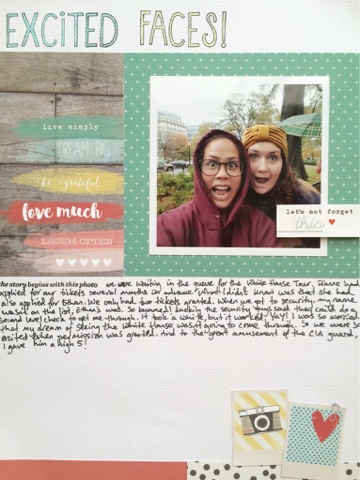 EXCITED FACES!
live simply
DREAM BIG
be grateful
love much
LAUGH OFTEN
let's not forget
this
the story begins with this photo we were waiting in the queue for the White House Tour. Diane had
applied for our tickets several months in advance. What I didn't know was that she had
also applied for Ethan. We only had two tickets granted. When we got to security, my name
wasn't on the list, Ethan's was. So bummed! Luckily the security guys said they could do a
second level check to get me through. It took a while, but it worked, YAY! I was so worried
that my dream of seeing the White House wasn't going to come through. So we were so
excited when permission was granted. And to the great amusement of the CIA guard,
I gave him a high 5!